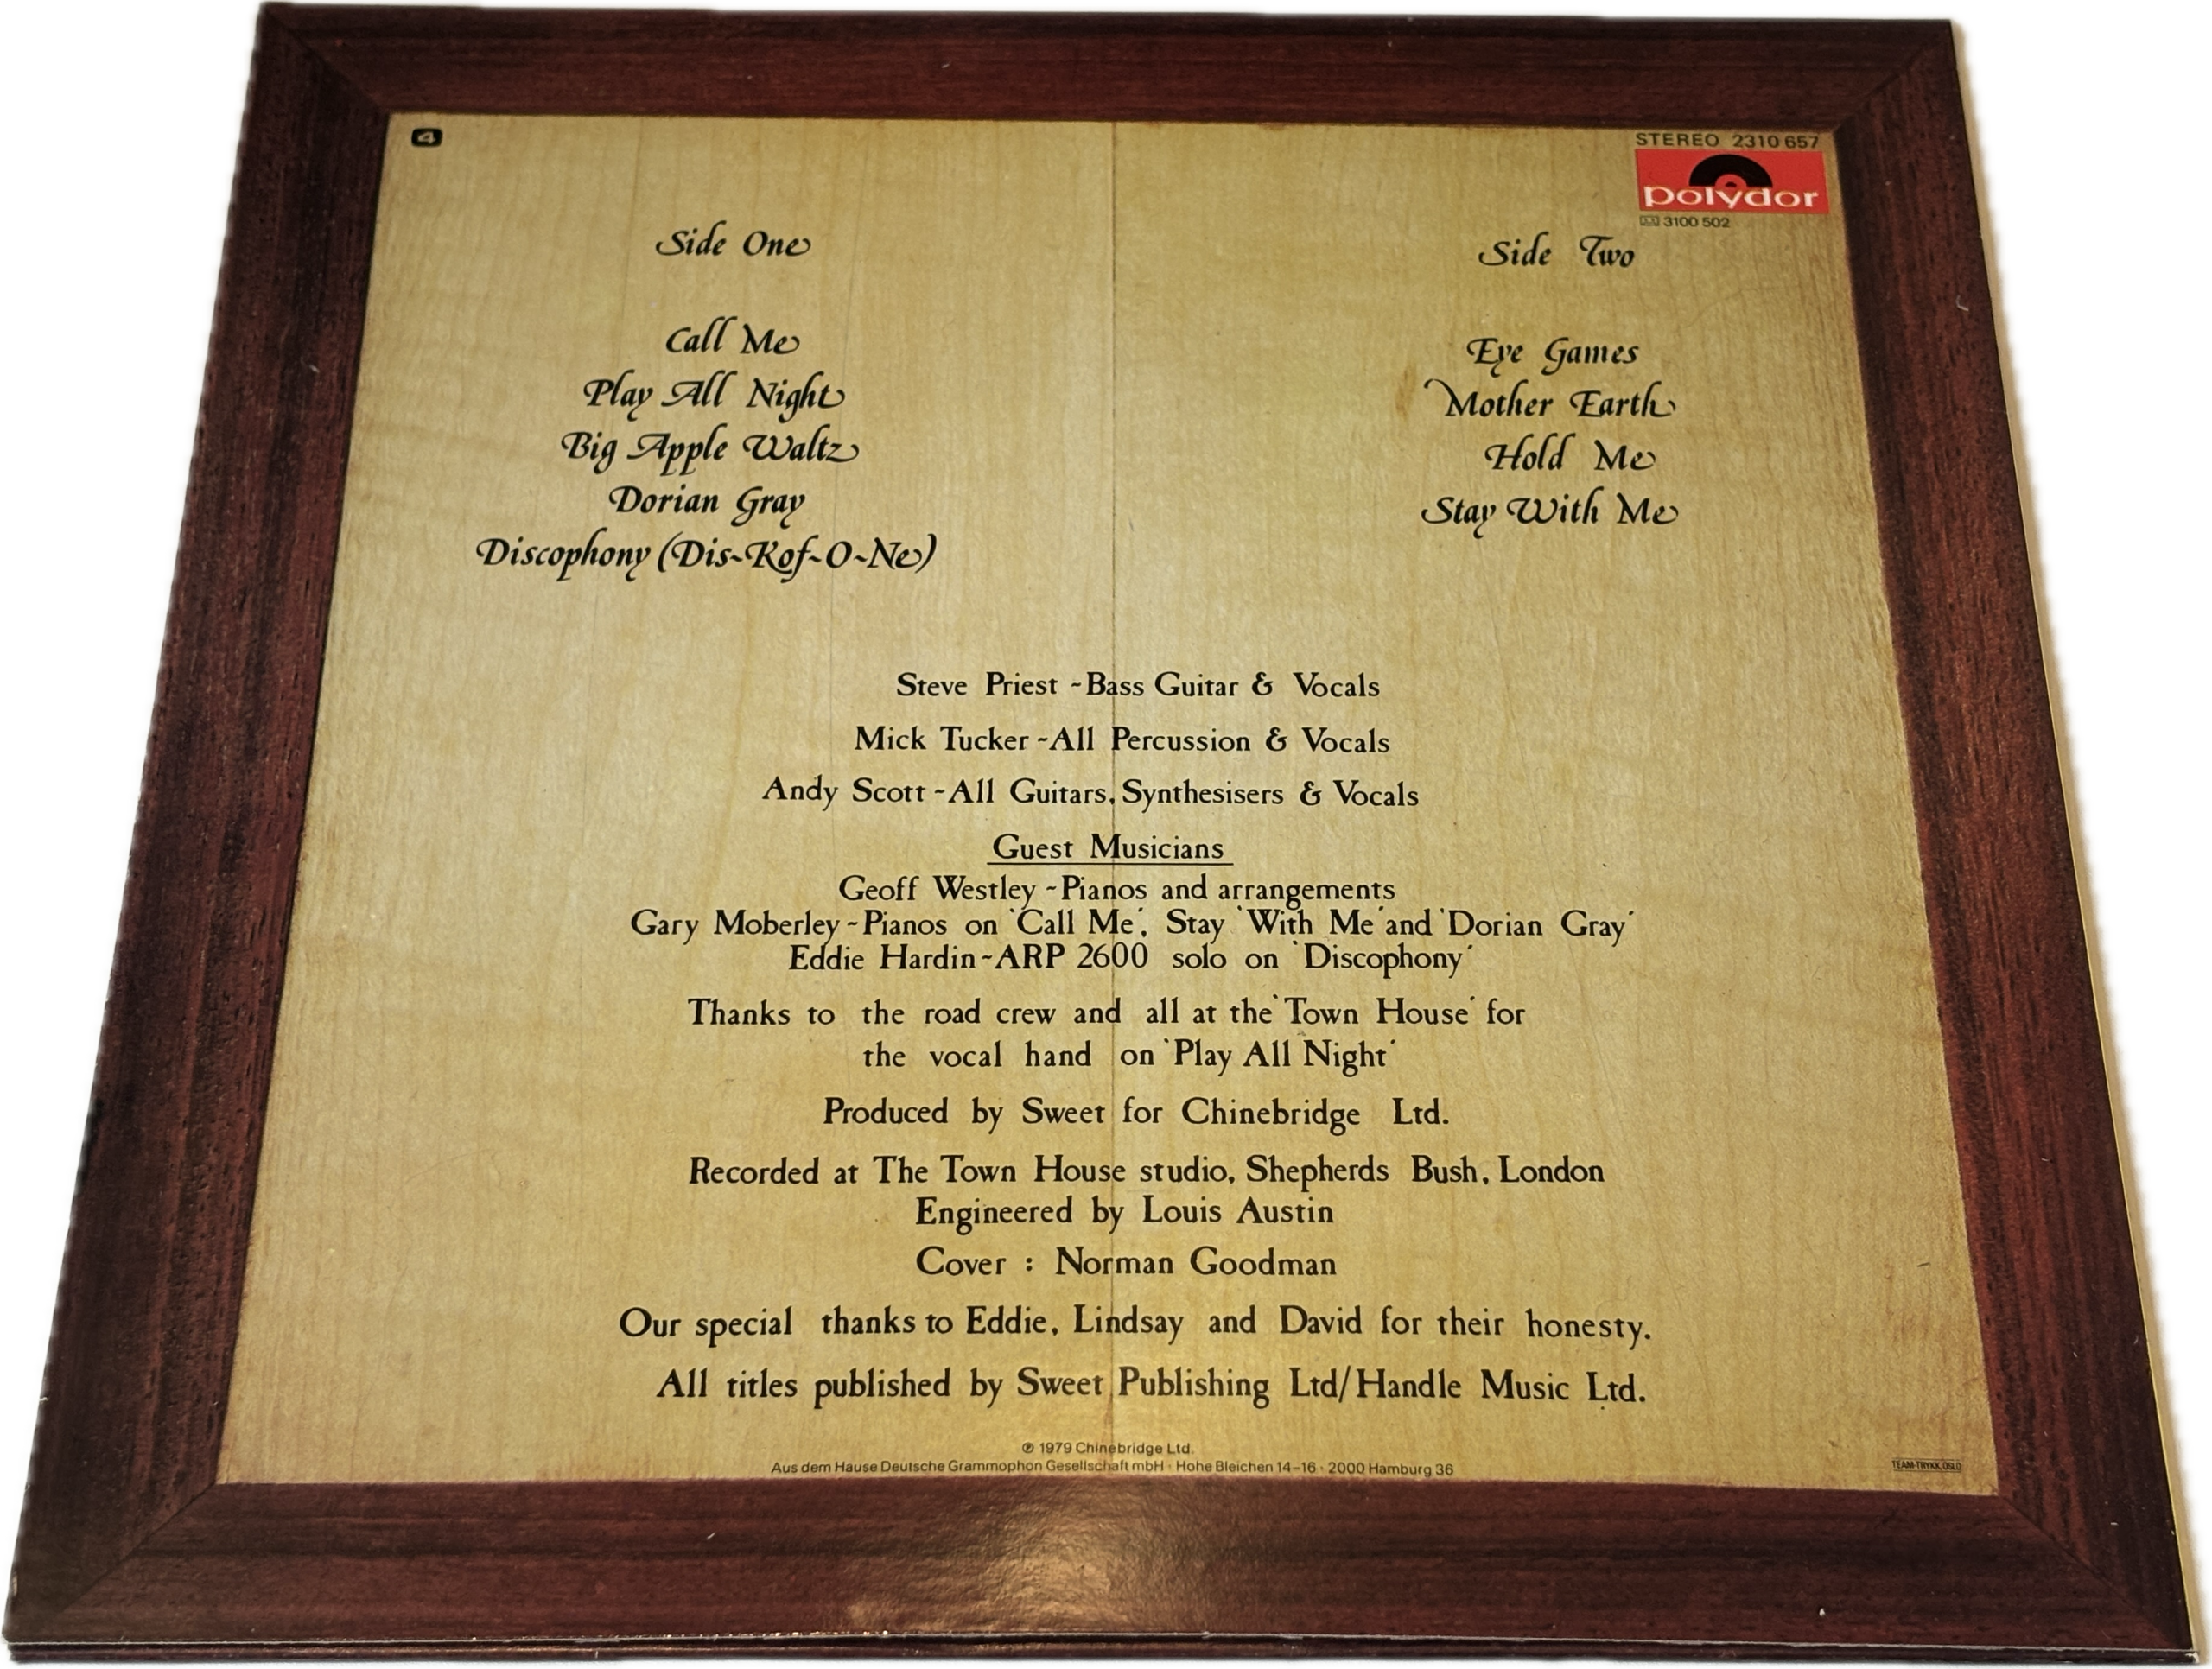 4
STEREO 2310 657
polydor
3100 502
Side One
Call Me
Play All Night
Big Apple Waltz
Dorian Gray
Discophony (Dis~Kof~O~Ne)
Side Two
Eye Games
Mother Earth
Hold Me
Stay With Me
Steve Priest ~Bass Guitar & Vocals
Mick Tucker ~All Percussion & Vocals
Andy Scott ~All Guitars, Synthesisers & Vocals
Guest Musicians
Geoff Westley ~Pianos and arrangements
Gary Moberley ~Pianos on 'Call Me', Stay 'With Me' and 'Dorian Gray'
Eddie Hardin ~ARP 2600 solo on 'Discophony'
Thanks to the road crew and all at the 'Town House' for
the vocal hand on 'Play All Night'
Produced by Sweet for Chinebridge Ltd.
Recorded at The Town House studio, Shepherds Bush, London
Engineered by Louis Austin
Cover : Norman Goodman
Our special thanks to Eddie, Lindsay and David for their honesty.
All titles published by Sweet Publishing Ltd/Handle Music Ltd.
℗ 1979 Chinebridge Ltd.
Aus dem Hause Deutsche Grammophon Gesellschaft mbH · Hohe Bleichen 14–16 · 2000 Hamburg 36
TEAM-TRYKK, OSLO